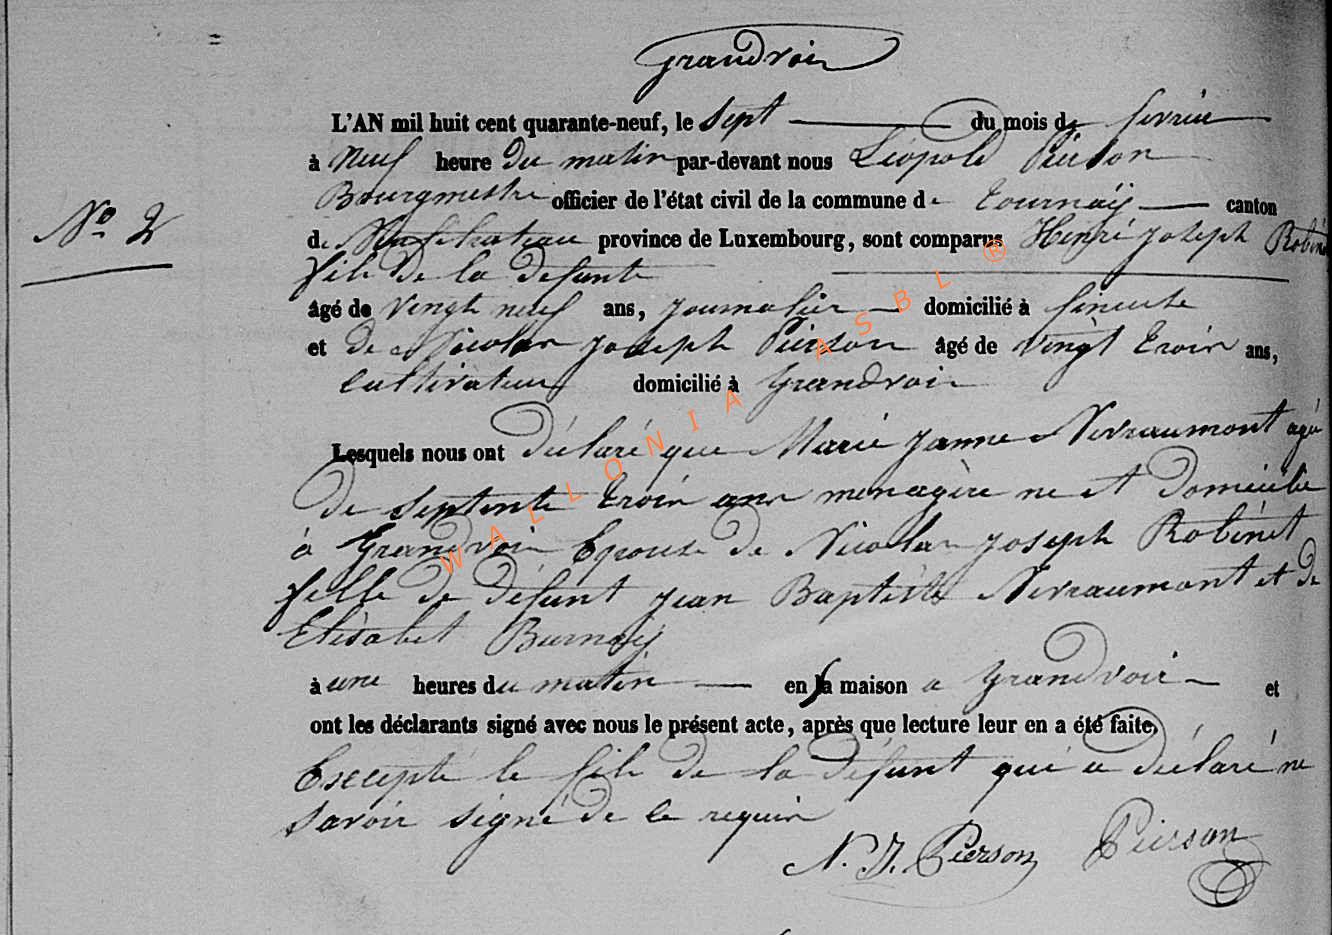 Grandvoir
L'AN mil huit cent quarante-neuf, le sept du mois de fevrier
à neuf heure du matin par-devant nous Léopold Pierson
Bourgmestre officier de l'état civil de la commune de Tournaÿ canton
N° 2
de Neufchateau province de Luxembourg, sont comparus Henri Joseph Robinet
fils de la defunte
âgé de vingt neuf ans, journalier domicilié à
et de Nicolas Joseph Pierson âgé de vingt trois ans,
cultivateur domicilié à Grandvoir
Lesquels nous ont déclaré que Marie Janne Nevraumont agée
de septente trois ans menagère né et domicilié
à Grandvoir Epouse de Nicolas Joseph Robinet
fille de défunt Jean Baptiste Nevraumont et de
Elisabet Burnaÿ
à une heures du matin en la maison a Grandvoir et
ont les déclarants signé avec nous le présent acte, après que lecture leur en a été faite,
Excepté le fils de la défunt qui a déclaré ne
savoir signé de ce requis
N. J. Pierson Pierson
WALLONIA ASBL ®